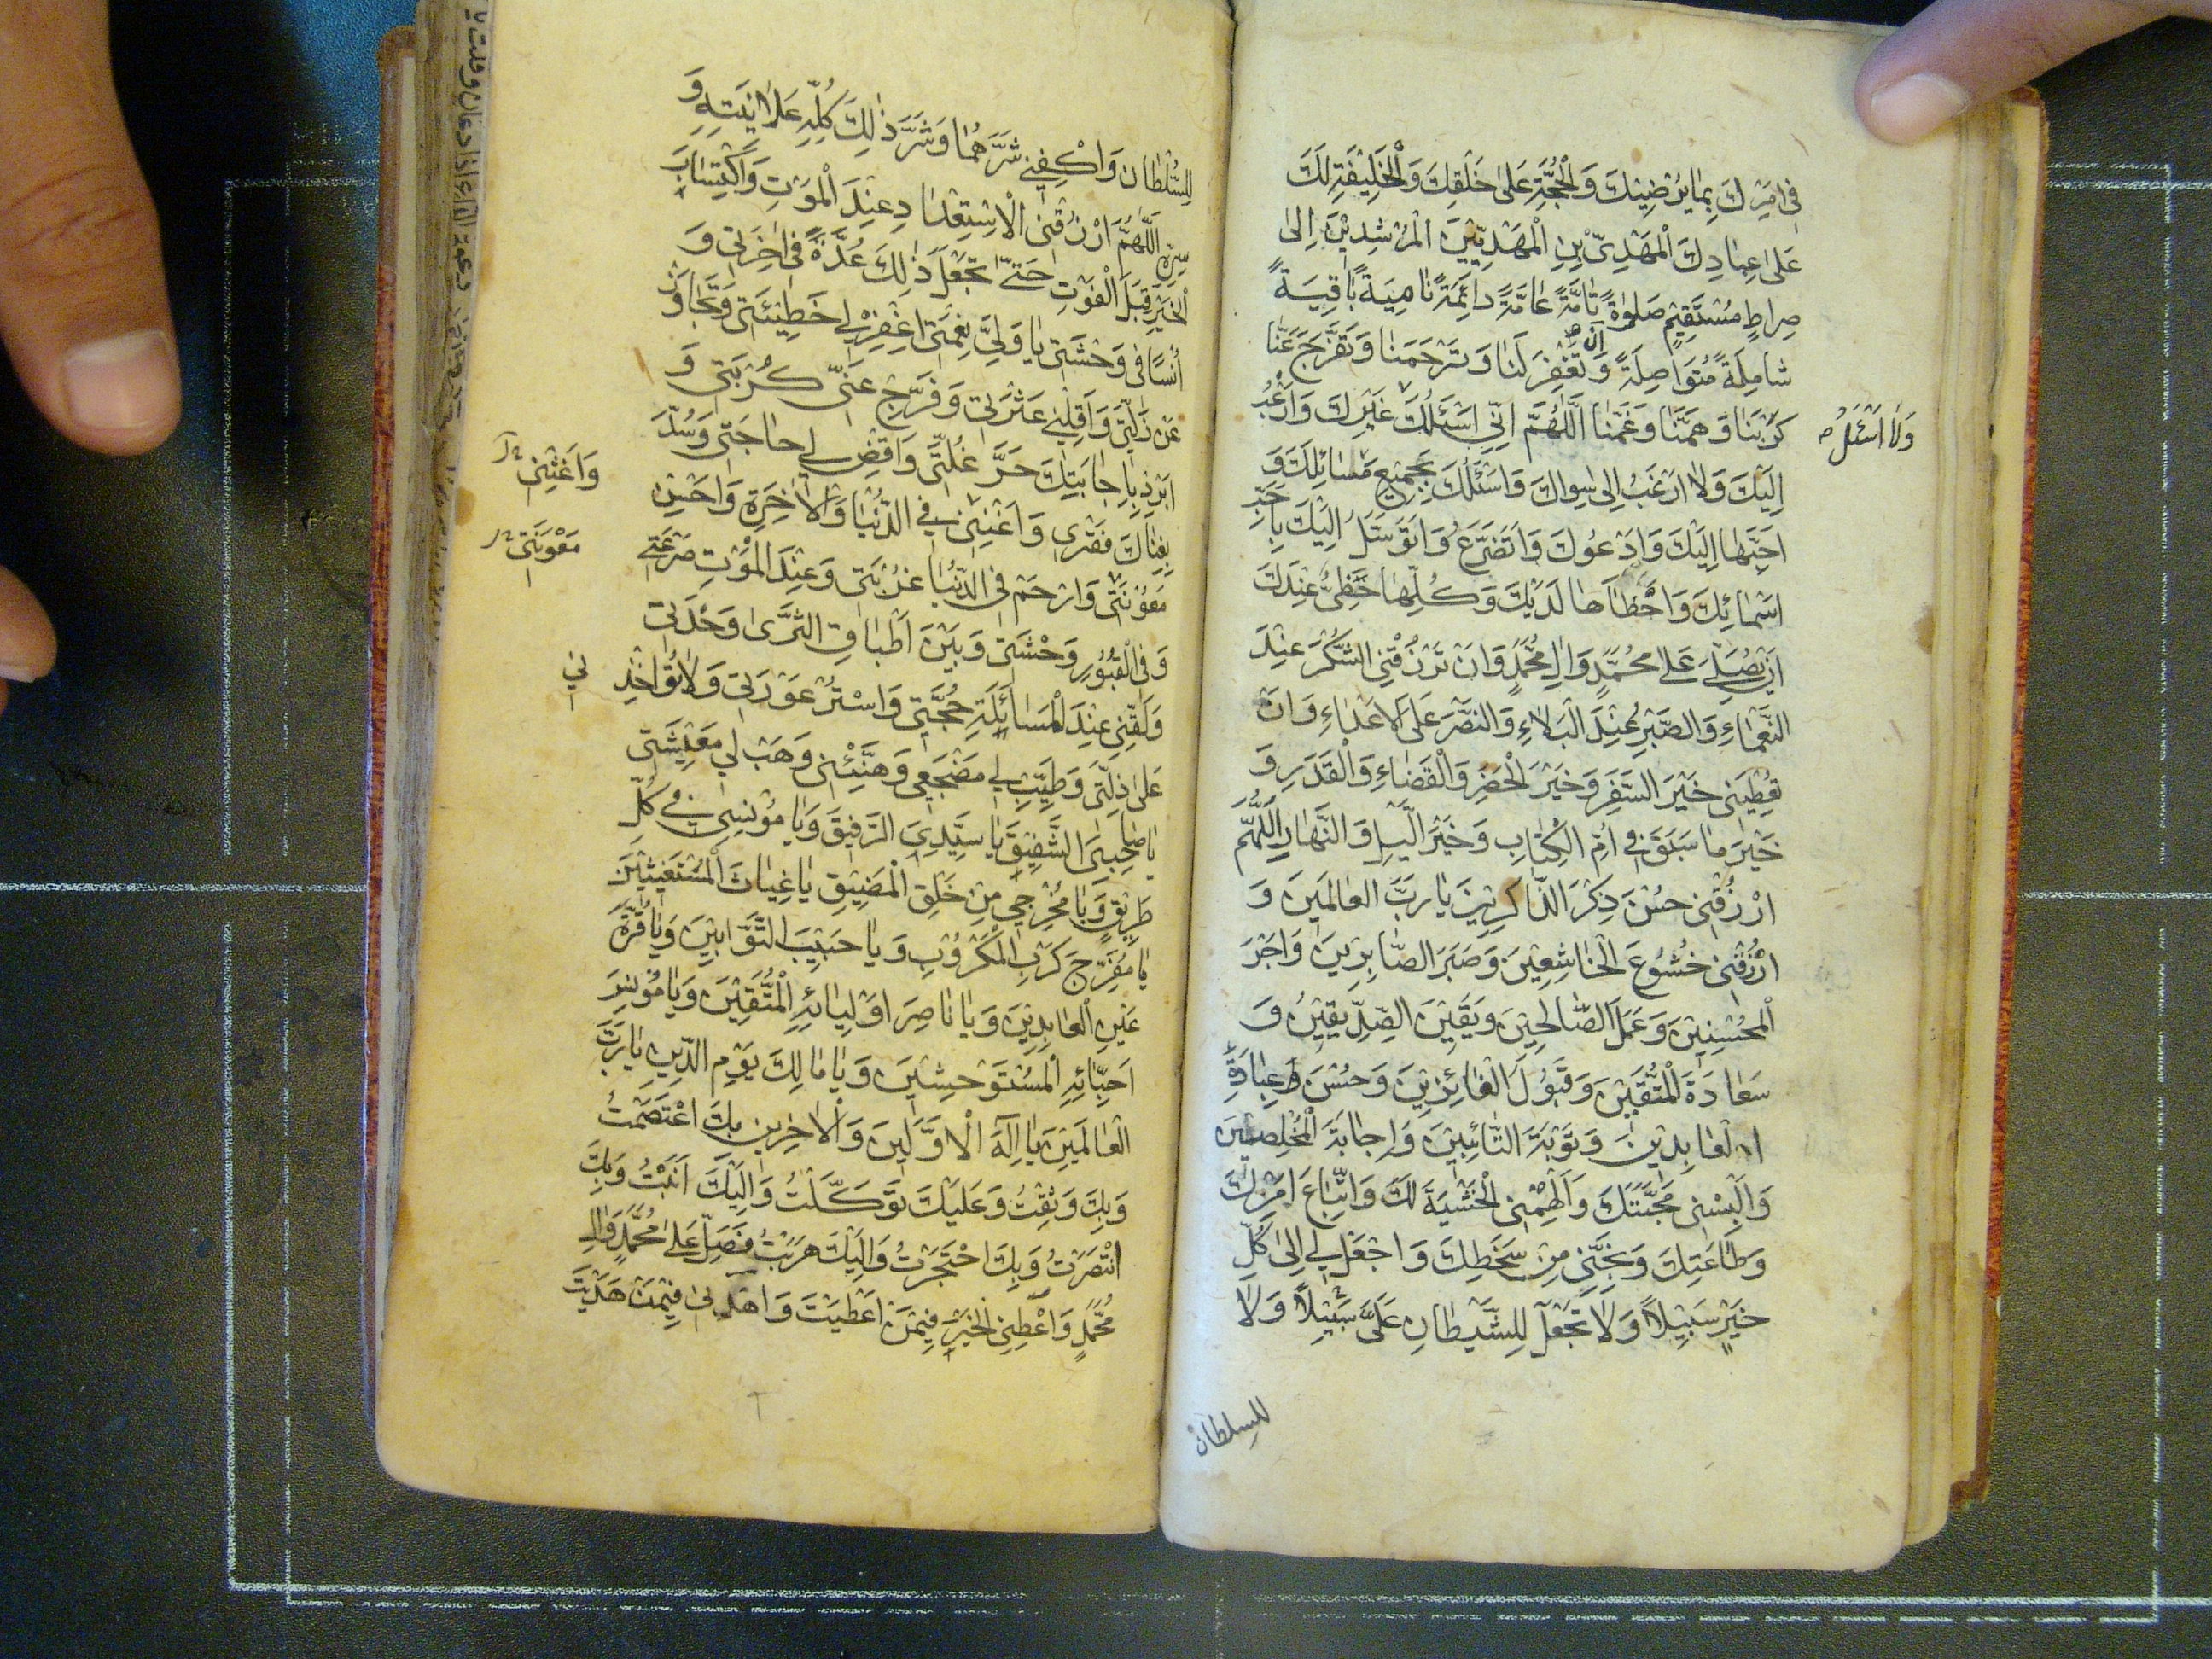 فِى اَمْرِكَ بِمَا يُرْضِيْكَ وَالْحُجَّةِ عَلَى خَلْقِكَ وَالْخَلِيْفَةِ لَكَ
عَلَى عِبَادِكَ الْمَهْدِىِّ بْنِ الْمَهْدِيِّيْنَ الْمُرْشِدِيْنَ اِلَى
صِرَاطٍ مُسْتَقِيْمٍ صَلٰوةً تَامَّةً عَامَّةً دَائِمَةً نَامِيَةً بَاقِيَةً
شَامِلَةً مُتَوَاصِلَةً وَ اَنْ تَغْفِرَ لَنَا وَتَرْحَمَنَا وَتُفَرِّجَ عَنَّا
كَرْبَنَا وَهَمَّنَا وَغَمَّنَا اَللّٰهُمَّ اِنِّى اَسْئَلُكَ غَيْرَكَ وَاَرْغَبُ
وَلَا اَسْئَلُ
اِلَيْكَ وَلَا اَرْغَبُ اِلَى سِوَاكَ وَاَسْئَلُكَ بِجَمِيْعِ مَسَائِلِكَ وَ
اَحَبِّهَا اِلَيْكَ وَاَدْعُوْكَ وَاَتَضَرَّعُ وَاَتَوَسَّلُ اِلَيْكَ بِاَحَبِّ
اَسْمَائِكَ وَاَحْظَاهَا لَدَيْكَ وَكُلُّهَا حَظِىٌّ عِنْدَكَ
اَنْ تُصَلِّىَ عَلَى مُحَمَّدٍ وَاٰلِ مُحَمَّدٍ وَاَنْ تَرْزُقَنِى الشُّكْرَ عِنْدَ
النَّعْمَاءِ وَالصَّبْرَ عِنْدَ الْبَلَاءِ وَالنَّصْرَ عَلَى الْاَعْدَاءِ وَاَنْ
تُعْطِيَنِى خَيْرَ السَّفَرِ وَخَيْرَ الْحَضَرِ وَالْقَضَاءِ وَالْقَدَرِ وَ
خَيْرَ مَا سَبَقَ فِى اُمِّ الْكِتَابِ وَخَيْرَ اللَّيْلِ وَالنَّهَارِ اَللّٰهُمَّ
ارْزُقْنِى حُسْنَ ذِكْرِ الذَّاكِرِيْنَ يَا رَبَّ الْعَالَمِيْنَ وَ
ارْزُقْنِى خُشُوْعَ الْخَاشِعِيْنَ وَصَبْرَ الصَّابِرِيْنَ وَاَجْرَ
الْمُحْسِنِيْنَ وَعَمَلَ الصَّالِحِيْنَ وَيَقِيْنَ الصِّدِّيْقِيْنَ وَ
سَعَادَةَ الْمُتَّقِيْنَ وَقَبُوْلَ الْفَائِزِيْنَ وَحُسْنَ عِبَادَةِ
الْعَابِدِيْنَ وَتَوْبَةَ التَّائِبِيْنَ وَاِجَابَةَ الْمُخْلِصِيْنَ
وَاَلْبِسْنِى مَحَبَّتَكَ وَاَلْهِمْنِى الْخَشْيَةَ لَكَ وَاتِّبَاعَ اَمْرِكَ
وَطَاعَتِكَ وَنَجِّنِى مِنْ سَخَطِكَ وَاجْعَلْ لِى اِلَى كُلِّ
خَيْرٍ سَبِيْلًا وَلَا تَجْعَلْ لِلشَّيْطَانِ عَلَىَّ سَبِيْلًا وَلَا
للسلطان
لِلسُّلْطَانِ وَاكْفِنِى شَرَّهُمَا وَشَرَّ ذٰلِكَ كُلِّهِ عَلَانِيَتِهِ وَ
سِرِّهِ اَللّٰهُمَّ ارْزُقْنِى الْاِسْتِعْدَادَ عِنْدَ الْمَوْتِ وَاكْتِسَابَ
الْخَيْرِ قَبْلَ الْفَوْتِ حَتّٰى تَجْعَلَ ذٰلِكَ عُدَّةً فِى اٰخِرَتِى وَ
اُنْسًا فِى وَحْشَتِى يَا وَلِىَّ نِعْمَتِى اغْفِرْ لِى خَطِيْئَتِى وَتَجَاوَزْ
عَنْ زَلَّتِى وَاَقِلْنِى عَثْرَتِى وَفَرِّجْ عَنِّى كُرْبَتِى وَ
اَبْرِدْ بِاِجَابَتِكَ حَرَّ غُلَّتِى وَاقْضِ لِى حَاجَتِى وَسُدَّ
بِغِنَاكَ فَقْرِى وَاَغْنِنِى فِى الدُّنْيَا وَالْاٰخِرَةِ وَاَحْسِنْ
وَاَغِثْنِى
مَعُوْنَتِى وَارْحَمْ فِى الدُّنْيَا غُرْبَتِى وَعِنْدَ الْمَوْتِ صَرْعَتِى
مَعْوَنَتِى
وَفِى الْقُبُوْرِ وَحْشَتِى وَبَيْنَ اَطْبَاقِ الثَّرَى وَحْدَتِى
وَلَقِّنِى عِنْدَ الْمَسَائَلَةِ حُجَّتِى وَاسْتُرْ عَوْرَتِى وَلَا تُؤَاخِذْ
نِى
عَلَى زَلَّتِى وَطَيِّبْ لِى مَضْجَعِى وَهَنِّئْنِى وَهَبْ لِى مَعِيْشَتِى
يَا صَاحِبِىَ الشَّفِيْقَ يَا سَيِّدِىَ الرَّفِيْقَ وَيَا مُوْنِسِى فِى كُلِّ
طَرِيْقٍ وَيَا مُخْرِجِى مِنْ حَلَقِ الْمَضِيْقِ يَا غِيَاثَ الْمُسْتَغِيْثِيْنَ
يَا مُفَرِّجَ كَرْبِ الْمَكْرُوْبِ وَيَا حَبِيْبَ التَّوَّابِيْنَ وَيَا قُرَّةَ
عَيْنِ الْعَابِدِيْنَ وَيَا نَاصِرَ اَوْلِيَائِهِ الْمُتَّقِيْنَ وَيَا مُوْنِسَ
اَحِبَّائِهِ الْمُسْتَوْحِشِيْنَ وَيَا مَالِكَ يَوْمِ الدِّيْنِ يَا رَبَّ
الْعَالَمِيْنَ يَا اِلٰهَ الْاَوَّلِيْنَ وَالْاٰخِرِيْنَ بِكَ اعْتَصَمْتُ
وَبِكَ وَثِقْتُ وَعَلَيْكَ تَوَكَّلْتُ وَاِلَيْكَ اَنَبْتُ وَبِكَ
انْتَصَرْتُ وَبِكَ احْتَجَرْتُ وَاِلَيْكَ هَرَبْتُ فَصَلِّ عَلَى مُحَمَّدٍ وَاٰلِ
مُحَمَّدٍ وَاَعْطِنِى الْخَيْرَ فِيْمَنْ اَعْطَيْتَ وَاهْدِنِى فِيْمَنْ هَدَيْتَ